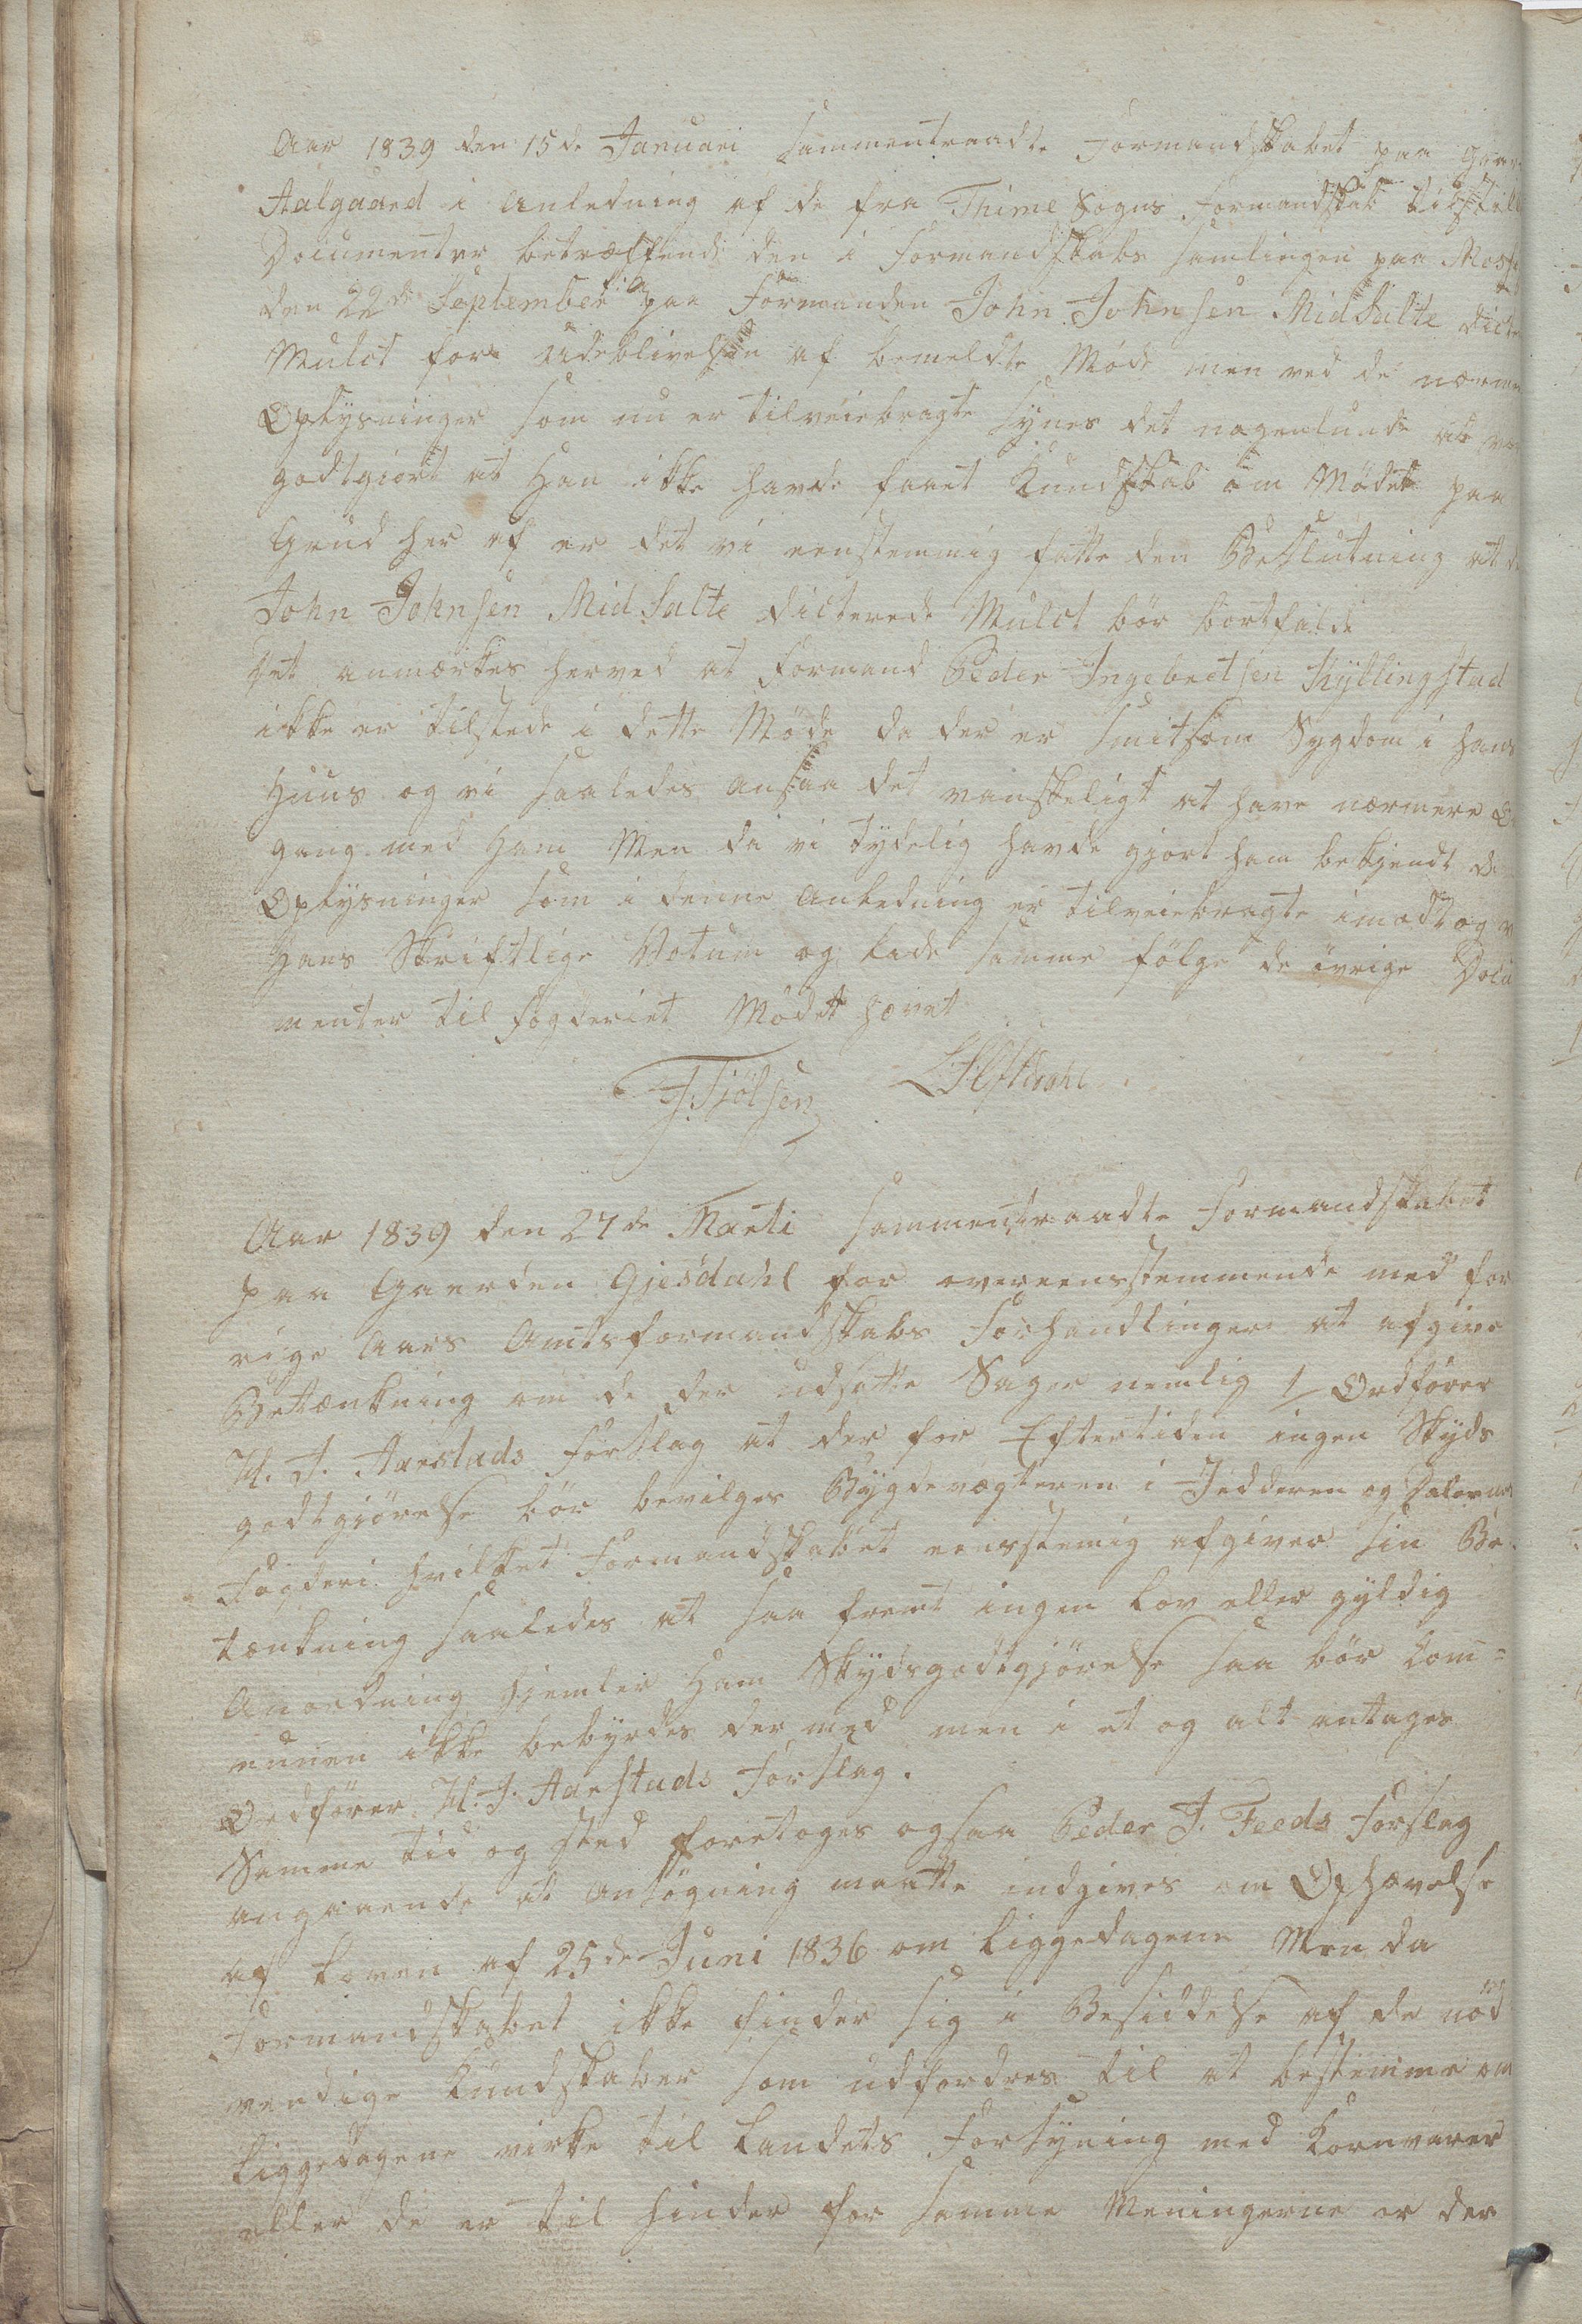 Aar 1839 den 15de Januari sammentraadte Formandskabet paa Gaar
Aalgaard i Anledning af de fra Thime Sogns Formandskab tilstill
Documenter betræffende den i Formandskabs samlingen paa
den 22de September f: A: paa Formanden John Johnsen Midsalte dicte
Mulct for Udeblivelsen af bemeldte Møde men ved de nærme
Oplysninger som nu er tilveiebragte synes det nogenlunde at væ
godtgiort at Han ikke havde faaet Kundskab om Mødet paa
Grund her af er det vi eenstemmig fatte den Beslutning at d
John Johnsen Midsalte dicterede Mulct bør bortfalde
Det anmærkes herved at Formand Peder Ingebretsen Kyllingstad
ikke er tilstede i dette Møde da der er smitsom Sygdom i hans
Huus og vi saaledes ansaa det vanskeligt at have nærmere O
gang med Ham Men da vi tydelig havde gjort ham bekjendt de
Oplysninger som i denne Anledning er tilveiebragte imodtog v
Hans Skriftlige Votum og lade samme følge de øvrige Docu
menter til Fogderiet Mødet hævet
J. Tjölsen
Aar 1839 den 27de Marti sammentraadte Formandskabet
paa Gaarden Gjesdahl for overeensstemmende med for
rige Aars Amtsformandskabs Forhandlinger at afgive
Betænkning om de der udsatte Sager nemlig 1/ Ordfører
H. T. Aarstads Forslag at der for Eftertiden ingen Skyds
godtgjørelse bør bevilges Bygdevægteren i Jedderen og Dalernes
Fogderi hvilket Formandskabet eenstemig afgiver sin Be-
tænkning saaledes at saa fremt ingen Lov eller gyldig
Anordning hjemler Ham Skydsgodtgjørelse saa bør Com=
munen ikke bebyrdes der med men i et og alt antages
Ordfører H. T. Aarstads Forslag.
Samme tid og sted foretoges ogsaa Peder J. Feeds Forslag
angaaende at Ansøgning maatte indgives om Ophævelse
af Loven af 25de Juni 1836 om Liggedagene Men da
Formandskabet ikke finder sig i Besiddelse af de nød
vendige Kundskaber som udfordres til at bestemme om
Liggedagene virke til Landets Forsyning med Kornvarer
eller de er til Hinder for samme Meningerne er der